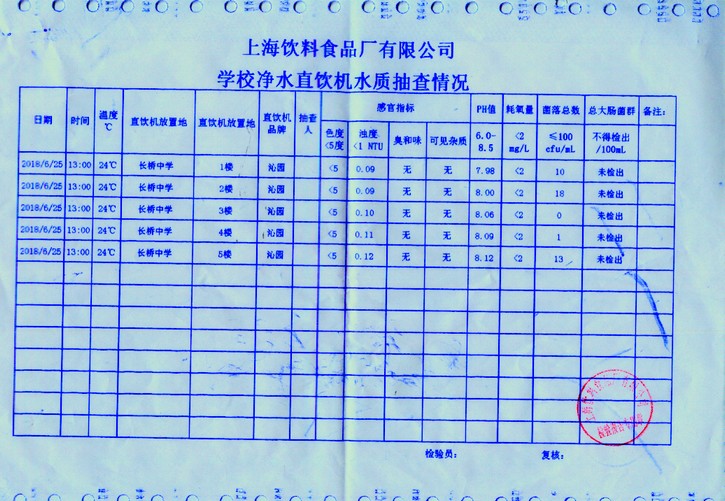 上海饮料食品厂有限公司
学校净水直饮机水质抽查情况
日期 时间 温度℃ 直饮机放置地 直饮机放置地 直饮机品牌 抽查人 感官指标 PH值 耗氧量 菌落总数 总大肠菌群 备注:
色度<5度 浊度<1 NTU 臭和味 可见杂质 6.0-8.5 <2 mg/L ≤100 cfu/mL 不得检出/100mL
2018/6/25 13:00 24℃ 长桥中学 1楼 沁园 <5 0.09 无 无 7.98 <2 10 未检出
2018/6/25 13:00 24℃ 长桥中学 2楼 沁园 <5 0.09 无 无 8.00 <2 18 未检出
2018/6/25 13:00 24℃ 长桥中学 3楼 沁园 <5 0.10 无 无 8.06 <2 0 未检出
2018/6/25 13:00 24℃ 长桥中学 4楼 沁园 <5 0.11 无 无 8.09 <2 1 未检出
2018/6/25 13:00 24℃ 长桥中学 5楼 沁园 <5 0.12 无 无 8.12 <2 13 未检出
检验员: 复核: